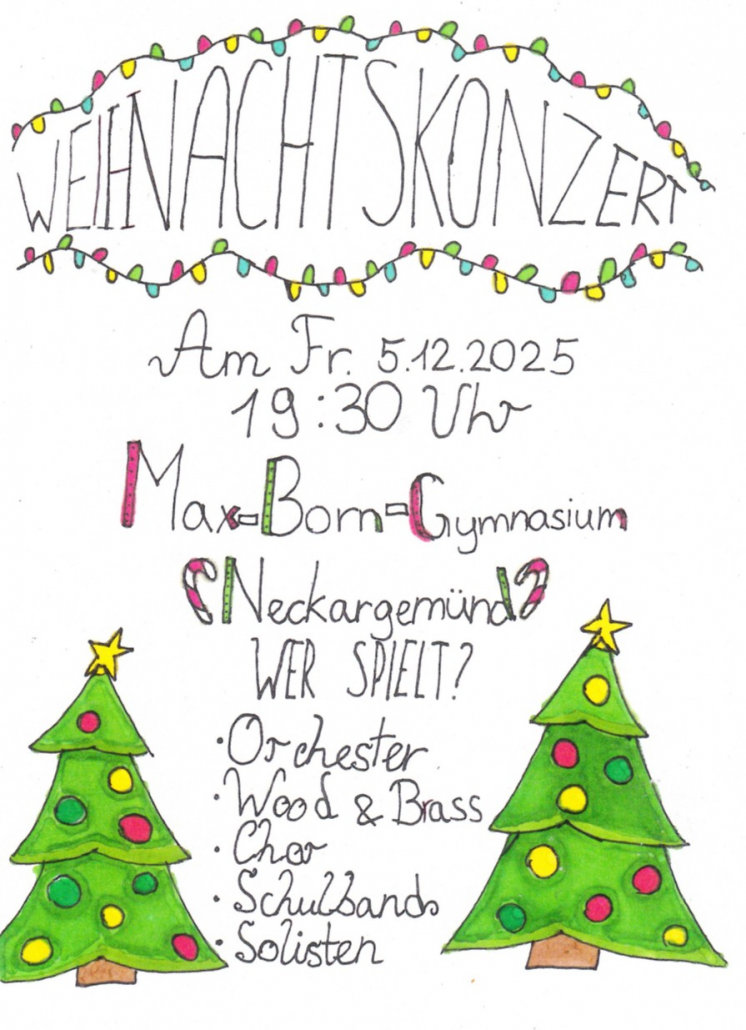 WEIHNACHTSKONZERT
Am Fr. 5.12.2025
19:30 Uhr
Max-Born-Gymnasium
Neckargemünd
WER SPIELT?
· Orchester
· Wood & Brass
· Chor
· Schulbands
· Solisten